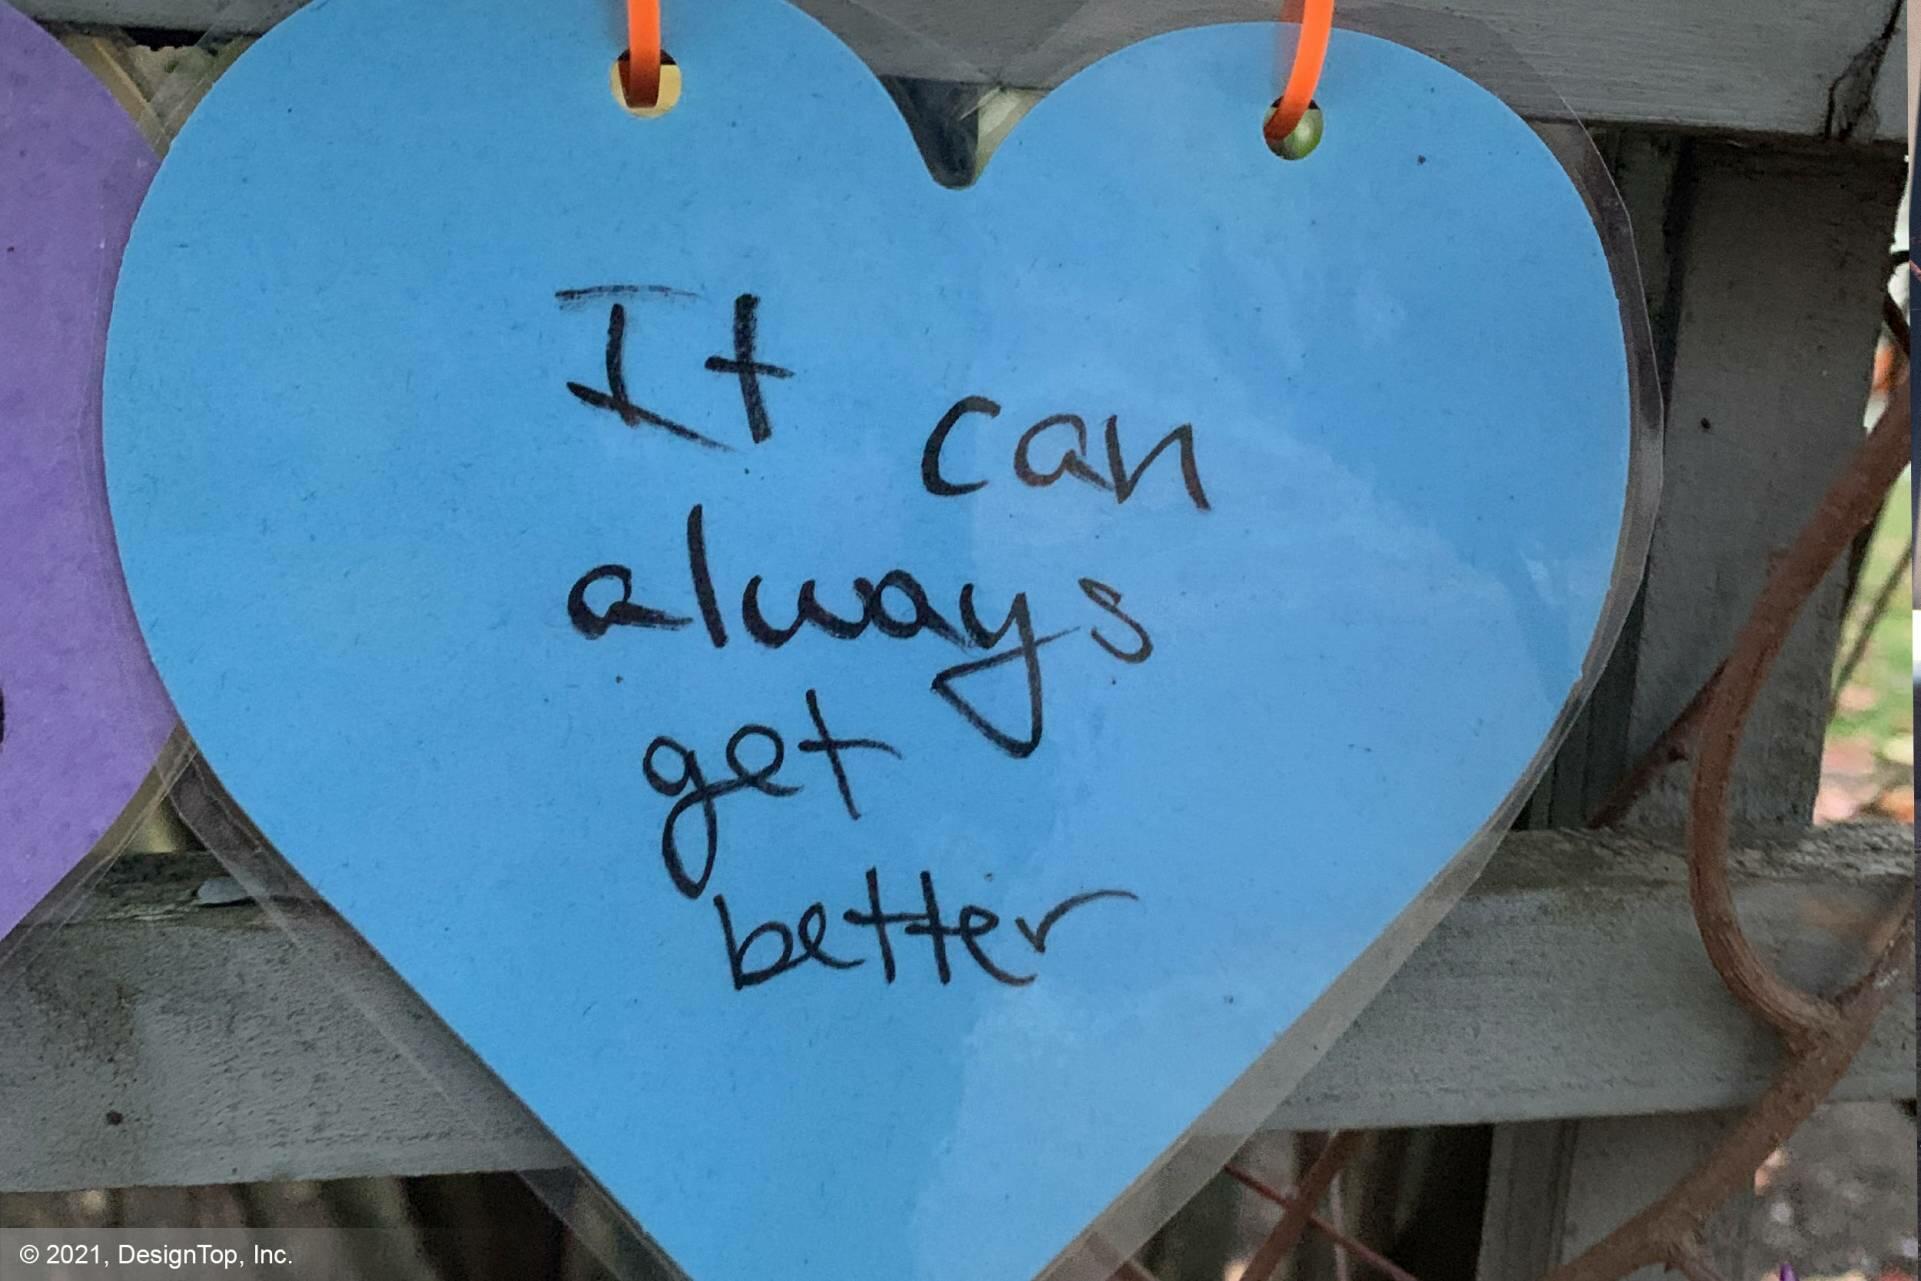 It can
always
get
better
© 2021, DesignTop, Inc.